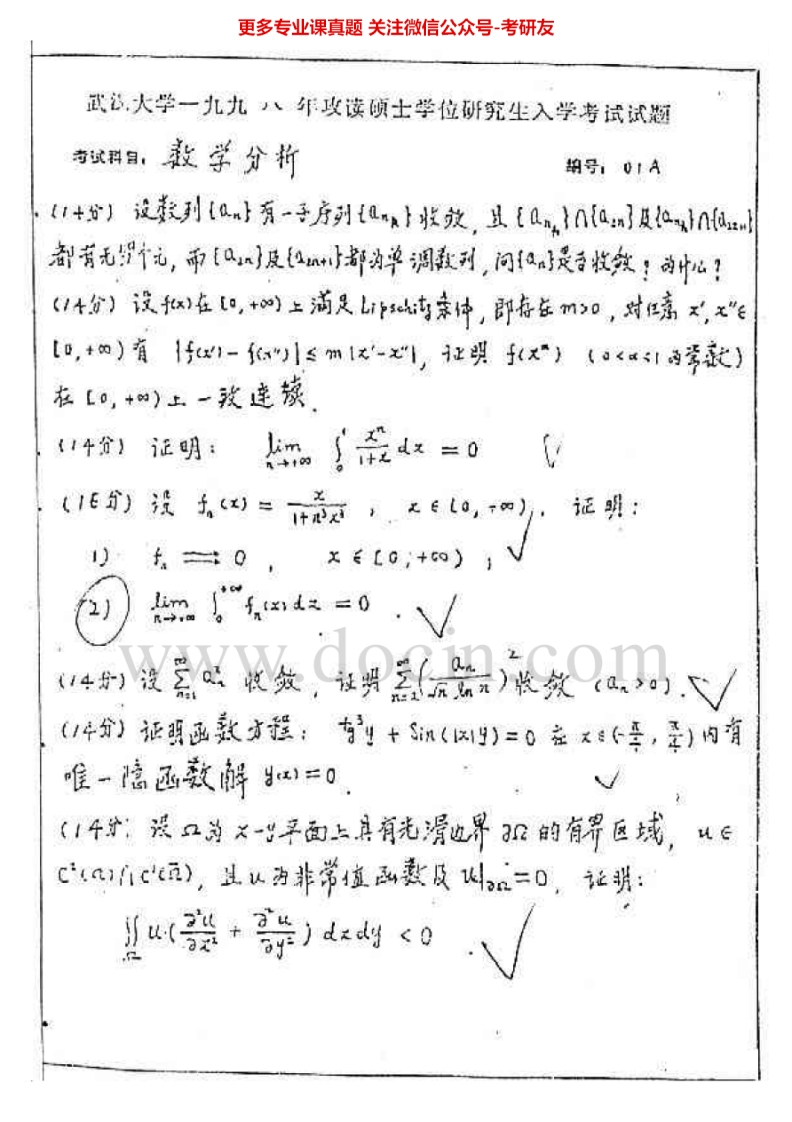 更多专业课真题 关注微信公众号-考研友
武汉大学一九九八年攻读硕士学位研究生入学考试试题
考试科目: 数学分析 编号: 01A
(14分) 设数列{aₙ}有一子序列{a_{n_k}}收敛, 且{a_{n_k}}∩{a_{2n}}及{a_{n_k}}∩{a_{2n+1}}
都有无穷个元, 而{a_{2n}}及{a_{2n+1}}都为单调数列, 问{aₙ}是否收敛? 为什么?
(14分) 设f(x)在[0,+∞)上满足Lipschitz条件, 即存在m>0, 对任意x', x''∈
[0,+∞)有 |f(x')-f(x'')|≤m|x'-x''|, 证明 f(x^α) (0<α<1为常数)
在[0,+∞)上一致连续.
(14分) 证明: lim_{n→+∞} ∫₀¹ xⁿ/(1+x) dx = 0
(16分) 设 fₙ(x) = x/(1+n³x³), x∈[0,+∞), 证明:
1) fₙ ⇉ 0, x∈[0,+∞),
(2) lim_{n→+∞} ∫₀^{+∞} fₙ(x)dx = 0.
www.docin.com
(14分) 设 ∑_{n=1}^∞ aₙ² 收敛, 证明 ∑_{n=2}^∞ (aₙ/(√n ln n))² 收敛 (aₙ>0).
(14分) 证明函数方程: tg³y + Sin(|x|y)=0 在 x∈(-π/4, π/4)内有
唯一隐函数解 y(x)=0.
(14分: 设Ω为x-y平面上具有光滑边界∂Ω的有界区域, u∈
C²(Ω)∩C¹(Ω̄), 且u为非常值函数及 u|_{∂Ω}=0, 证明:
∬_Ω u·(∂²u/∂x² + ∂²u/∂y²) dxdy < 0.